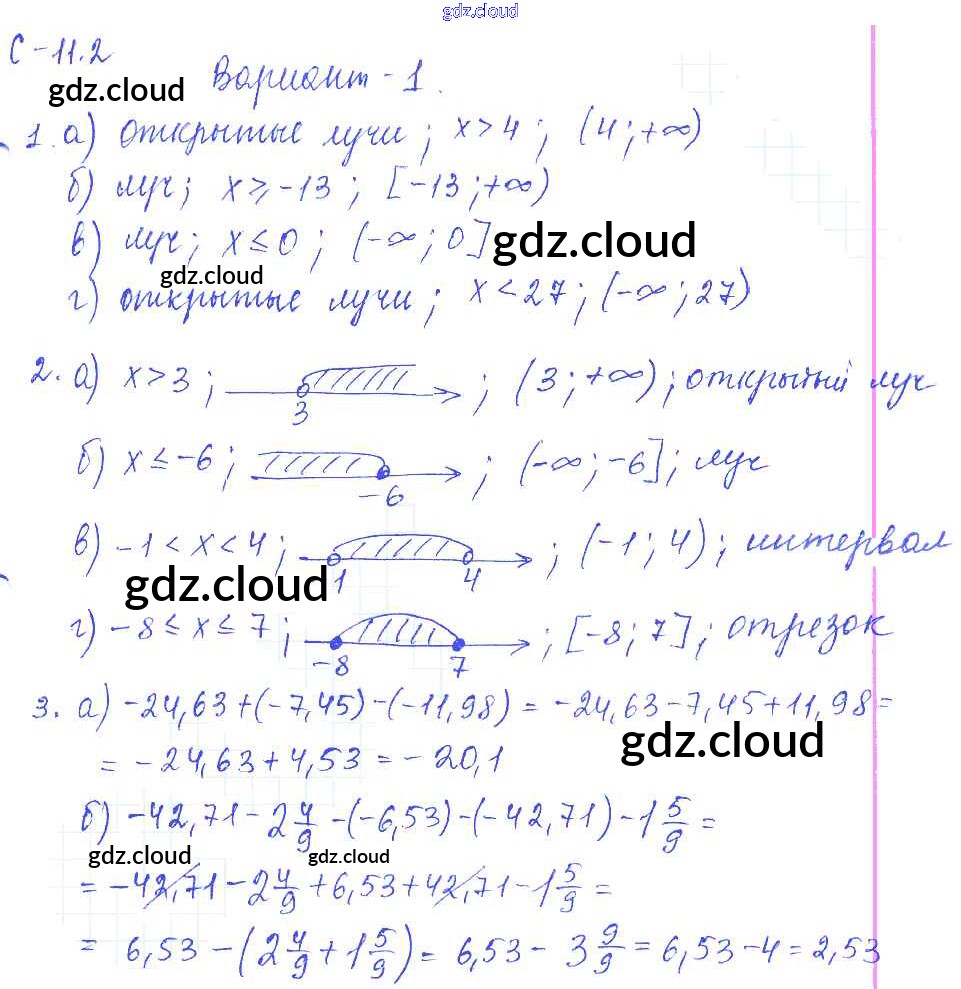 gdz.cloud
С-11.2
gdz.cloud Вариант-1.
1. а) открытые лучи; x>4; (4;+∞)
б) луч; x≥-13; [-13;+∞)
в) луч; x≤0; (-∞;0] gdz.cloud
gdz.cloud
г) открытые лучи; x<27; (-∞;27)
2. а) x>3; 3; (3;+∞); открытый луч
б) x≤-6; -6; (-∞;-6]; луч
в) -1<x<4; -1 4; (-1;4); интервал
gdz.cloud
г) -8≤x≤7; -8 7; [-8;7]; отрезок
3. а) -24,63+(-7,45)-(-11,98)=-24,63-7,45+11,98=
gdz.cloud
=-24,63+4,53=-20,1
б) -42,71-2 4/9-(-6,53)-(-42,71)-1 5/9=
gdz.cloud gdz.cloud
=-42,71-2 4/9+6,53+42,71-1 5/9=
= 6,53-(2 4/9+1 5/9)=6,53-3 9/9=6,53-4=2,53